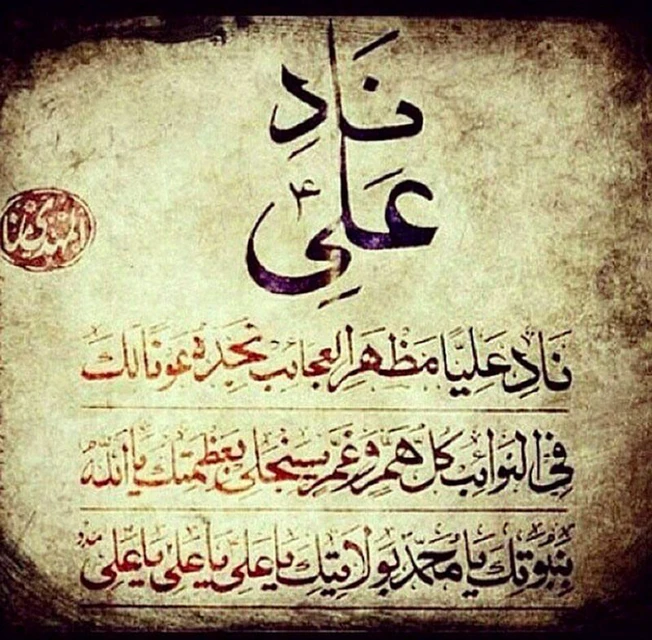 نَادِ
عَلِي
المهدي منا
نَادِ عَلِيًّا مَظْهَرَ العجائب تجده عونا لك
فِي النوائب كل هم وغم سينجلي بعظمتك يا الله
بنبوتك يا محمد بولايتك يا علي يا علي يا علي مدد